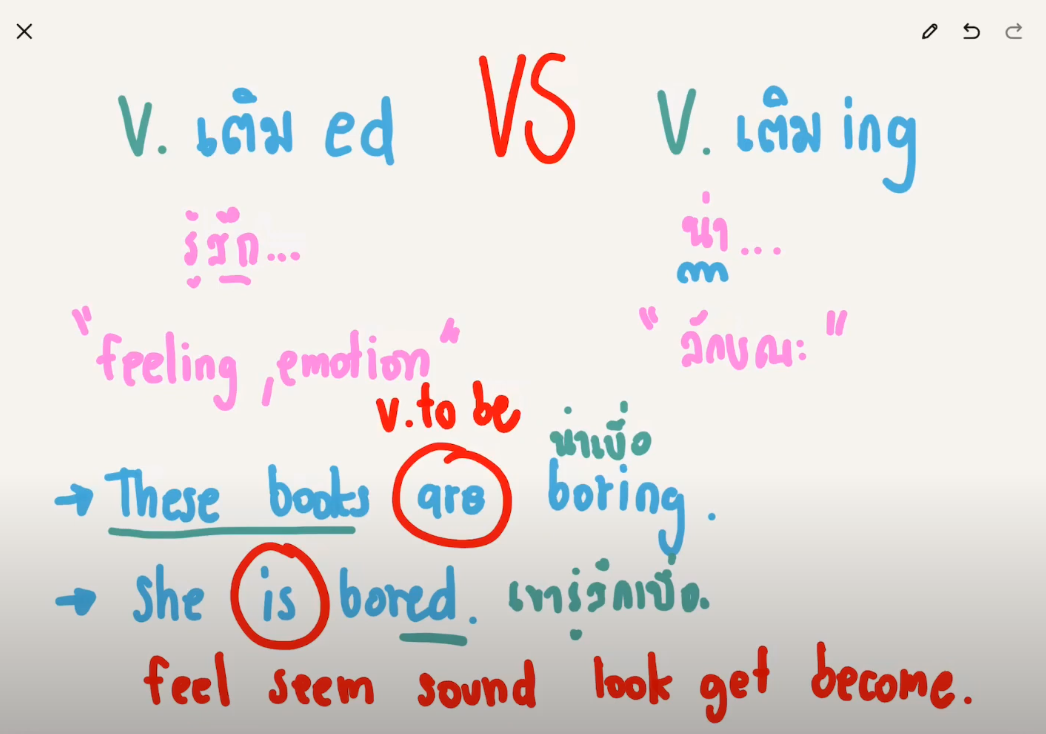 V. เติม ed VS V. เติม ing
รู้สึก... น่า...
"feeling, emotion" "ลักษณะ"
v. to be
น่าเบื่อ
→ These books are boring.
→ She is bored. เขารู้สึกเบื่อ.
feel seem sound look get become.